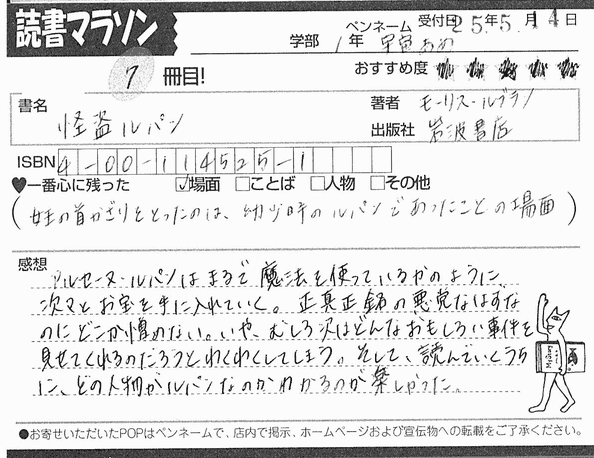 読書マラソン
学部 1年 ペンネーム 甲宙あめ 受付日 25年5月14日
7冊目! おすすめ度
書名 怪盗ルパン
著者 モーリス・ルブラン
出版社 岩波書店
ISBN 4-00-114525-1
♥一番心に残った ☑場面 □ことば □人物 □その他
(女王の首かざりをとったのは、幼少時のルパンであったことの場面)
感想
アルセーヌ・ルパンはまるで魔法を使っているかのように
次々とお宝を手に入れていく。正真正銘の悪党なはずな
のにどこか憎めない。いや、むしろ次はどんなおもしろい事件を
見せてくれるのだろうとわくわくしてしまう。そして、読んでいくうち
に、どの人物がルパンなのかわかるのが楽しかった。
●お寄せいただいたPOPはペンネームで、店内で掲示、ホームページおよび宣伝物への転載をご了承ください。